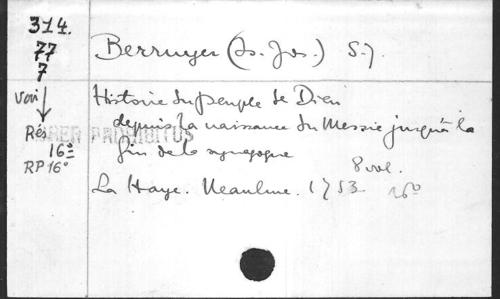 314.
77
7
voir
Rés
16°
RP 16°
Berruyer (Is. Jos.) S.J.
Histoire du peuple de Dieu
depuis la naissance du Messie jusqu'à la
LIBER PROHIBITUS
fin de la synagogue
8 vol.
La Haye. Neaulme. 1753. 16°